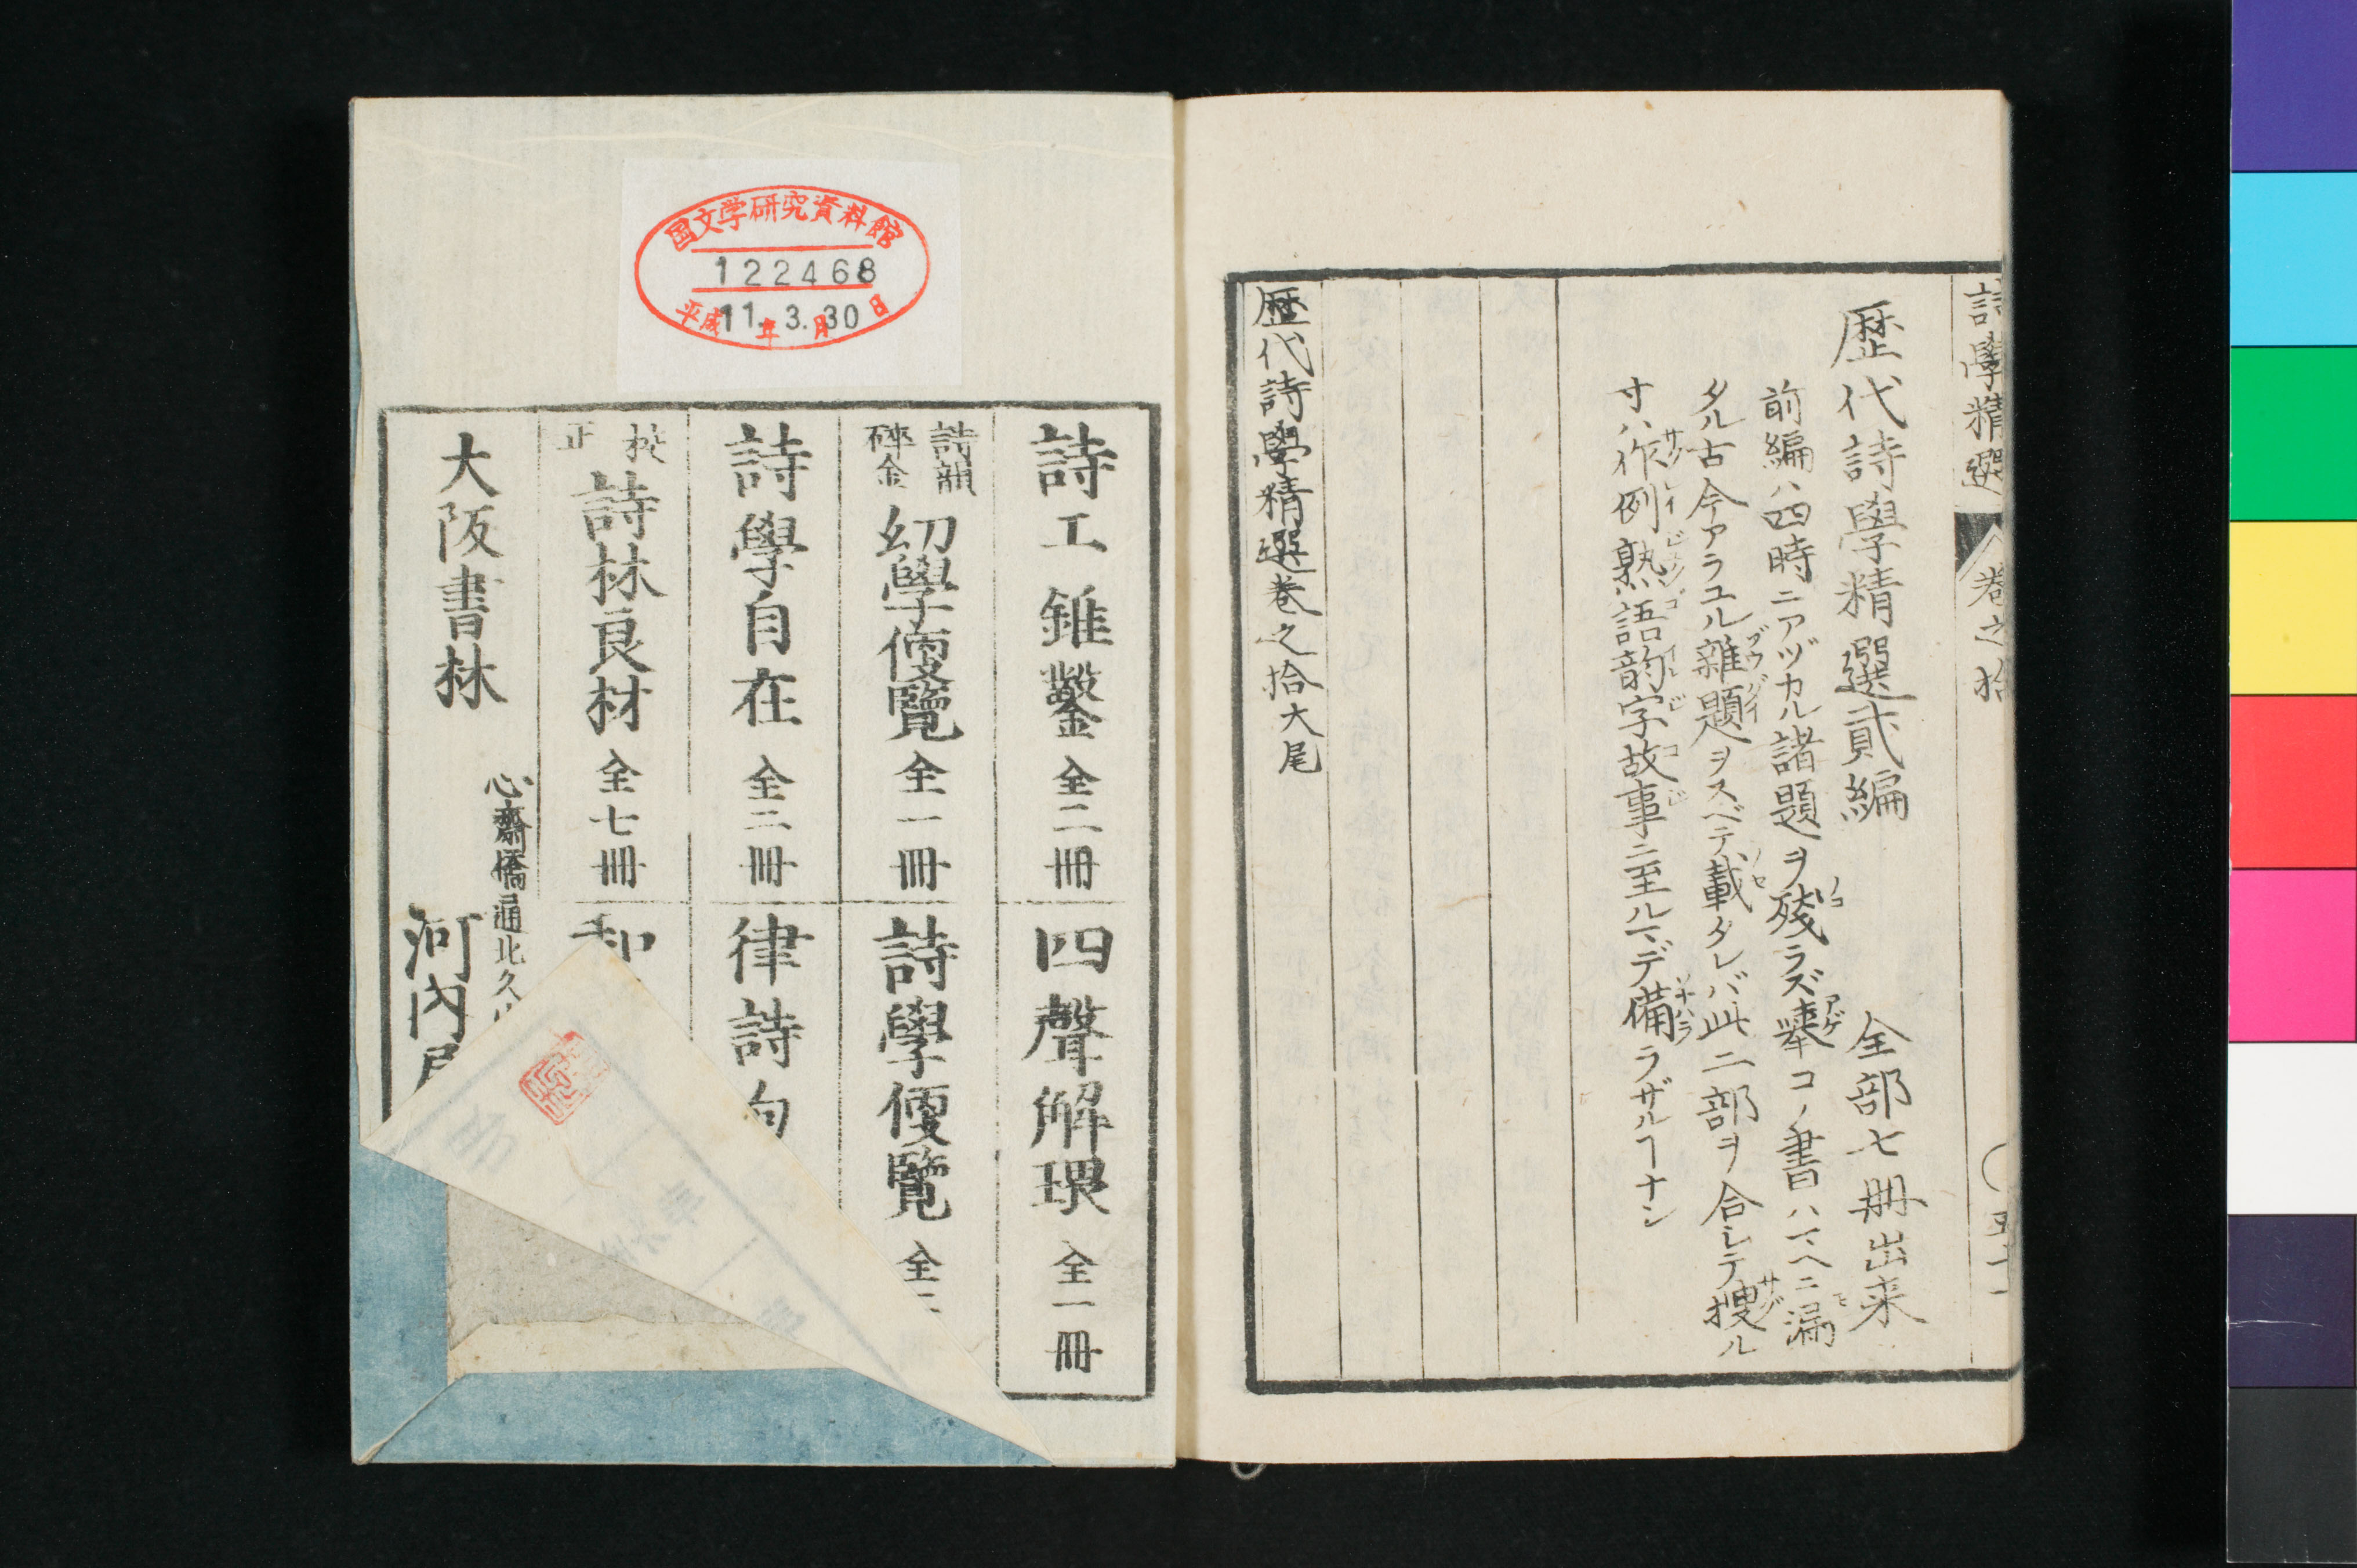 詩學精選
卷之拾
五十一
歷代詩學精選貳編
全部七冊出来
前編ハ四時ニアヅカル諸題ヲ殘ラズ舉コノ書ハマヘニ漏
タル古今アラユル雜題ヲスベテ載タレバ此二部ヲ合シテ搜ル
寸ハ作例熟語韵字故事ニ至ルマデ備ラザルヿナシ
歷代詩學精選卷之拾大尾
国文学研究資料館
122468
平成11年3.月30日
詩工錐鑿 全二冊
四聲解環 全一冊
詩韻碎金 幼學便覽 全一冊
詩學便覽 全二
詩學自在 全二冊
律詩
校正 詩林良材 全七冊
大阪書林
心齋橋通北久
河内